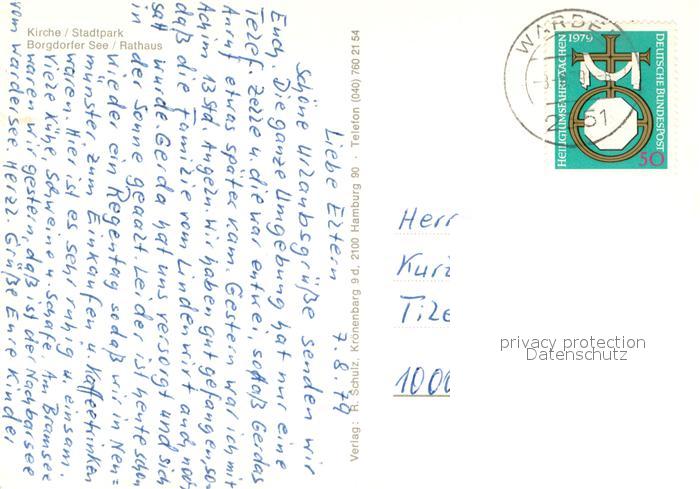 Kirche / Stadtpark
Borgdorfer See / Rathaus
7.8.79
Liebe Eltern
Schöne Urlaubsgrüße senden wir
Euch. Die ganze Umgebung hat nur eine
Telef. Zelle u. die war entwei, sodaß Gerdas
Anruf etwas später kam. Gestern war ich mit
Achim 13 Std. Angeln. Wir haben gut gefangen, so-
daß die Familie vom Lindenwirt auch noch
satt wurde. Gerda hat uns versorgt und sich
in der Sonne geaalt. Leider ist heute schon
wieder ein Regentag sodaß wir in Neu=
münster zum Einkaufen u. Kaffeetrinken
waren. Hier ist es sehr ruhig u. einsam.
Viele Kühe Schweine u. Schafe. Am Bramsee
waren wir gestern, daß ist der Nachbarsee
vom Warder see. Herzl. Grüße Eure Kinder
Verlag: R. Schulz, Krönenbarg 9d, 2100 Hamburg 90 · Telefon (040) 760 21 54
WARDE
51
HEILIGTUMSFAHRT AACHEN 1979
DEUTSCHE BUNDESPOST
50
Herr
Kur
Tile
1000
privacy protection
Datenschutz